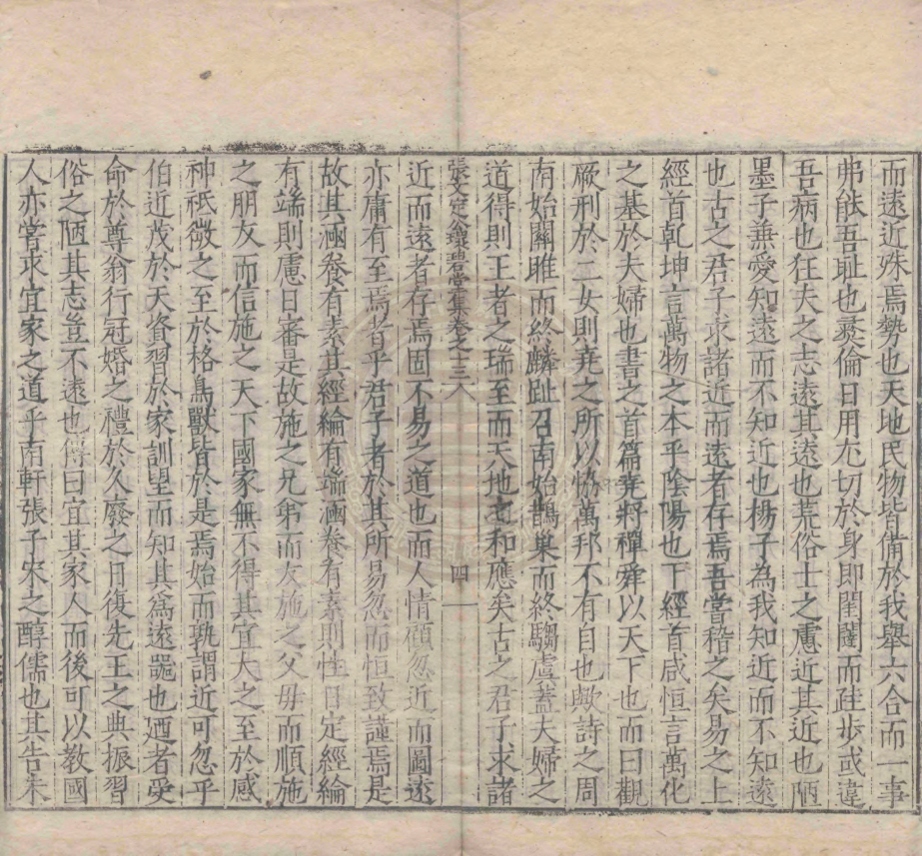 而遠近殊焉勢也天地民物皆備於我舉六合而一事
弗能吾耻也彛倫日用尤切於身即閨闥而跬步或違
吾病也狂夫之志遠其遠也荒俗士之慮近其近也陋
墨子兼愛知遠而不知近也楊子為我知近而不知遠
也古之君子求諸近而遠者存焉吾嘗稽之矣易之上
經首乾坤言萬物之本乎陰陽也下經首咸恒言萬化
之基於夫婦也書之首篇堯將禪舜以天下也而曰觀
厥刑於二女則堯之所以協萬邦不有自也歟詩之周
南始關雎而終麟趾召南始鵲巢而終騶虞蓋夫婦之
道得則王者之瑞至而天地之和應矣古之君子求諸
張文定公環碧堂集卷之十三 四
近而遠者存焉固不易之道也而人情顧忽近而圖遠
亦庸有至焉者乎君子者於其所易忽而恒致謹焉是
故其涵養有素其經綸有端涵養有素則性日定經綸
有端則慮日審是故施之兄弟而友施之父母而順施
之朋友而信施之天下國家無不得其宜大之至於感
神祇微之至於格鳥獸皆於是焉始而孰謂近可忽乎
伯近茂於天資習於家訓望而知其爲遠器也迺者受
命於尊翁行冠婚之禮於久廢之日復先王之典振習
俗之陋其志豈不遠也傳曰宜其家人而後可以教國
人亦嘗求宜家之道乎南軒張子宋之醇儒也其告朱